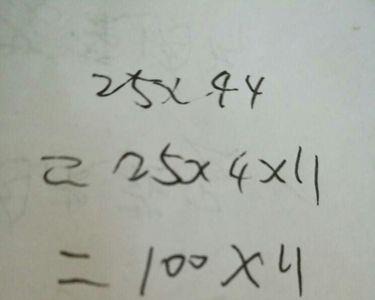 25×44
=25×4×11
=100×11